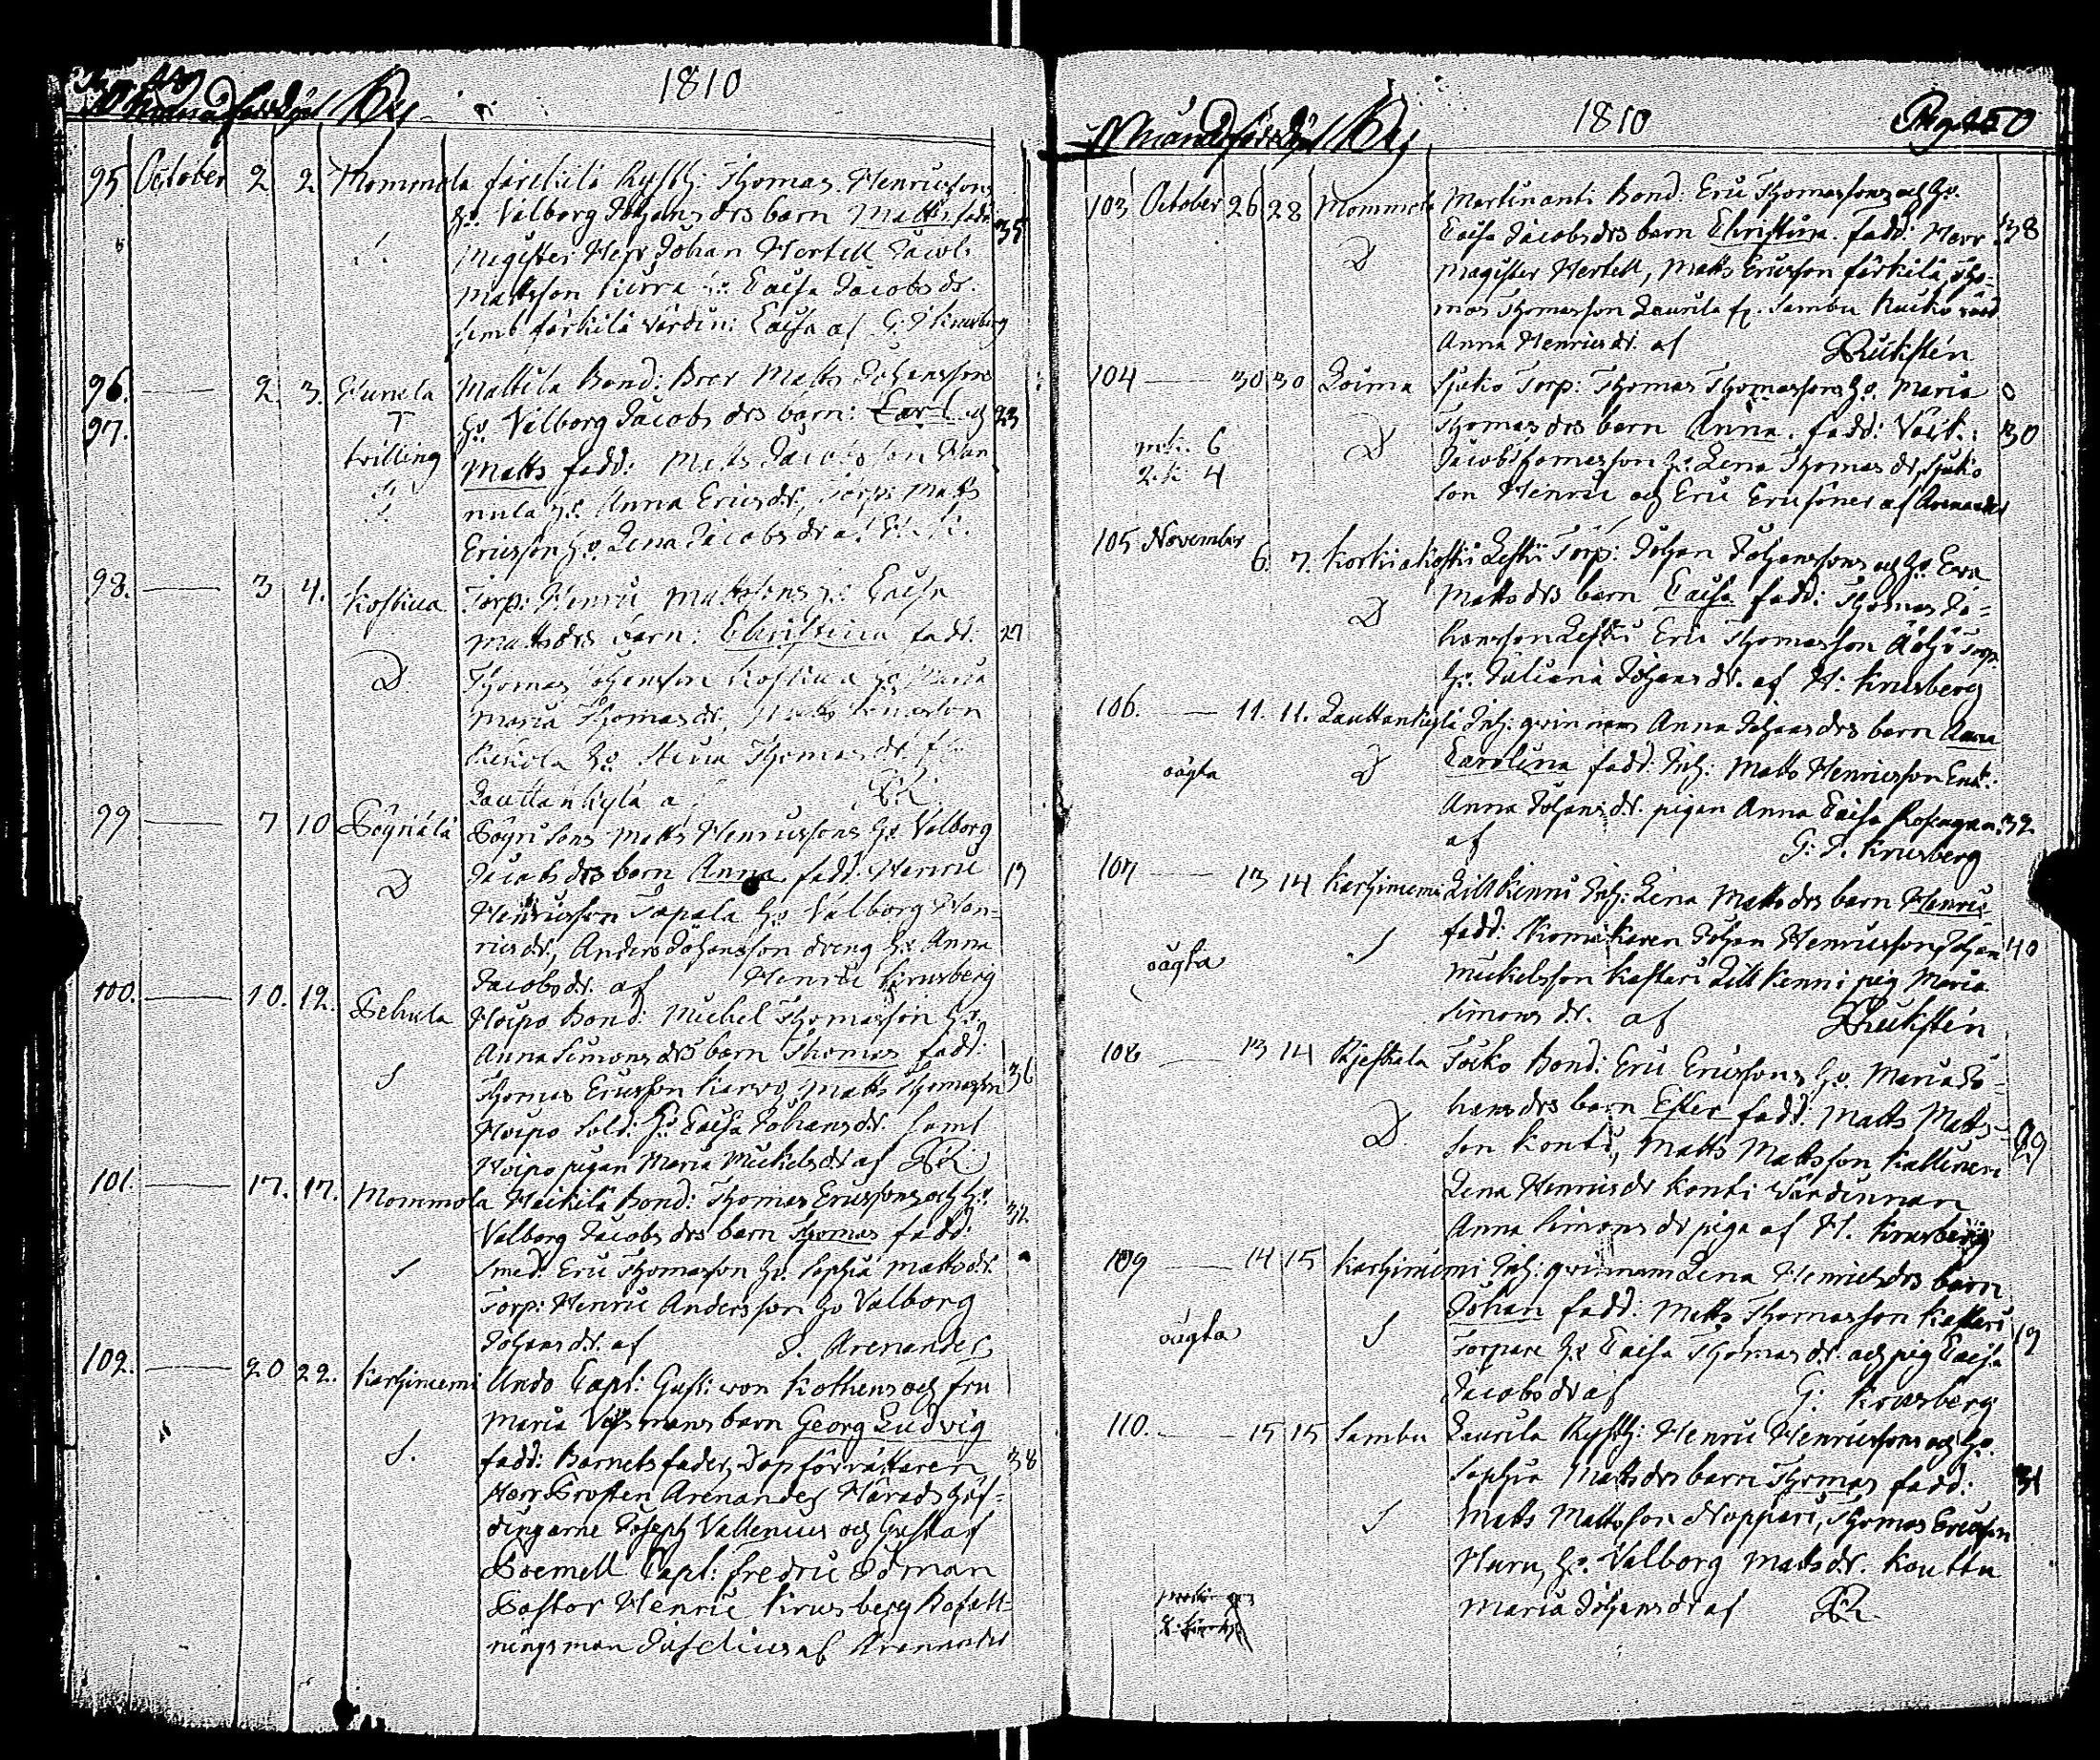 1810
Månad född döpt By
95. October 2 2 Mommola förekilä Rysth: Thomas Henricssons
hu. Valborg Johansdrs barn Matts fadd: 35
Magister Herr Johan Hertell Jacob
Mattsson hu. Caisa Jacobsdr.
samt förkilä värdin: Caisa af G: Krusberg
96. 2. 3. Hunela Mattila Bond: Bror Matts Johanssons
97. T hu. Valborg Jacobsdrs barn: Carl och 23
tvilling Matts fadd: Matts Jacobsson Han
nula hu. Anna Ericsdr., Torp: Matts
Ericsson hu. Lena Jacobsdr af H. K.
98. 3 4. Kostiua Torp: Henric Mattssons hu. Caisa
Mattsdrs barn: Christiina fadd. 27
D Thomas Johansson Kostiua hu. Maria
Maria Thomasdr., Matts
hu. Maria Thomasdr. f
Lauttankylä af
99 7 10 Pöyriälä Pöyri Sons Matts Henricssons hu. Valborg
D Jacobsdrs barn Anna. fadd: Henric 19
Henricsson Tapala hu. Valborg Hen-
ricsdr., Anders Johansson dreng hu. Anna
Jacobsdr. af Henric Krusberg
100. 10. 12. Sehula Hoipo Bond: Michel Thomasson hu.
Anna Simonsdrs barn Thomas fadd:
S Thomas Ericsson Karvo, Matts Thomasson 36
Hoipo Sold: hu. Caisa Johansdr. samt
Hoipo pigan Maria Mickelsdr af
101. 17. 17. Mommola Heikilä Bond: Thomas Ericssons och hu.
Valborg Jacobsdrs barn Thomas fadd: 32
S Smed: Eric Thomasson hu. Sophia Mattsdr.
Torp: Henric Andersson hu Valborg
Johansdr. af J. Arenander
102. 20 22. Karhiniemi Ando Capt: Gust: von Kothens och fru
Maria Vasmans barn Georg Ludvig
S. fadd: Barnets fader, Dopförrättaren 38
Herr Prosten Arenander Häradshöf-
dingarne Joseph Vallenius och Gustaf
Poemell Capt: Fredric Ödman
Pastor Henric Krusberg Befall-
ningsman Juselius af Arenander
1810 Pag. 150
Månad född döpt By
103 October 26 28 Mommola Martinanti Bond: Eric Thomassons och hu.
Caisa Jacobsdrs barn Christina. fadd: Herr 38
D Magister Hertell, Matts Ericsson förkilä Tho-
mas Thomasson Laurila fr. Sambu
Anna Henricsdr. af Rükstén
104 30 30 Loima Sjuko Torp: Thomas Thomassons hu. Maria 0
D Thomasdrs barn Anna. fadd: 30
6 Jacob Thomasson hu. Lena Thomasdr, Sjuko
4 son Henric och Eric Ericsöner af Arenander
105 November
6. 7. Korkiakoski Leski Torp: Johan Johanssons och hu. Eva
Mattsdrs barn Caisa fadd: Thomas Jo-
D hansson Leski Eric Thomasson Torp.
hu. Juliana Johansdr. af H: Krusberg
106. 11. 11. Lauttankylä Inh: qvinnans Anna Johansdrs barn Anna
oägta D Carolina fadd: Inh: Matts Henricsson Enk:
Anna Johansdr. pigan Anna Caisa 32
af G: J. Krusberg
107 13 14 Karhiniemi Lill Kenni Inh: Lena Mattsdrs barn Henric
fadd: Skomakaren Johan Henricsson Johan 40
oägta S Mickelsson Kaskeri Lill Kenni pig Maria
Simonsdr. af Rükstén
108 13 14 Räjeskala Torko Bond: Eric Ericssons hu. Maria Jo-
hansdrs barn Ester fadd: Matts Matts-
D. son Konti, Matts Mattsson Kallineri 29
Lena Henricsdr Konti Värdinnan
Anna Simonsdr piga af H. Krusberg
109 14 15 Karhiniemi Inh: qvinnans Lena Henricsdrs barn
oägta S Johan fadd: Matts Thomasson Kaskeri 19
Torpare hu Caisa Thomasdr. och pig Caisa
Jacobsdr af G: Krusberg
110. 15 15 Sambu Laurila Rysth: Henric Henricssons och hu.
Sophia Mattsdrs barn Thomas fadd: 31
S Matts Mattsson Noppari, Thomas Ericsson
Huru, hu. Valborg Mattsdr. Kouttu
Maria Johansdr af